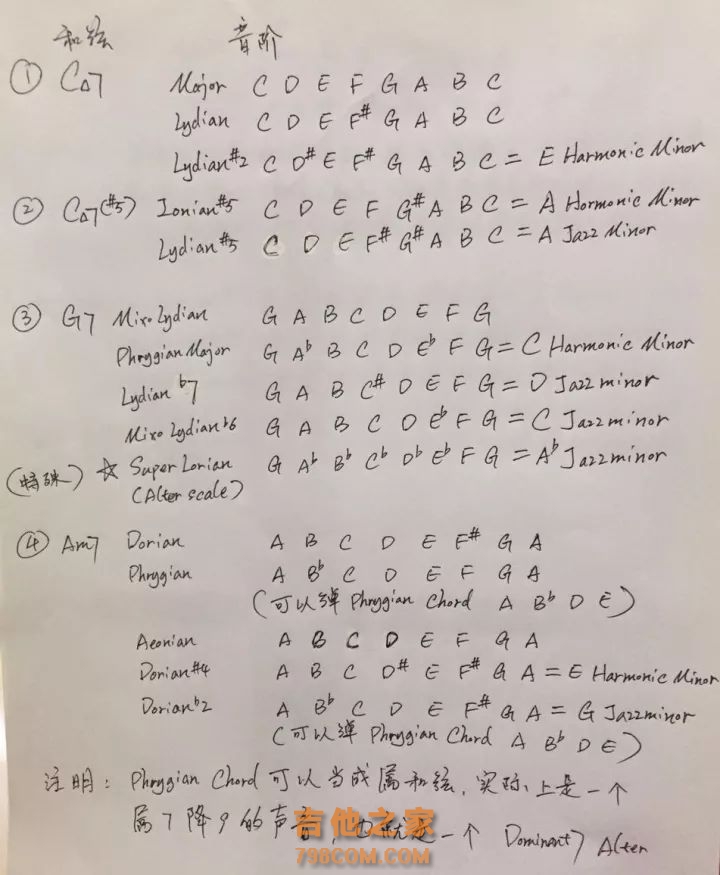 和弦 音阶
① C△7 Major C D E F G A B C
Lydian C D E F# G A B C
Lydian#2 C D# E F# G A B C = E Harmonic Minor
② C△7(#5) Ionian#5 C D E F G# A B C = A Hormonic Minor
Lydian#5 C D E F# G# A B C = A Jazz Minor
③ G7 Mixo Lydian G A B C D E F G
Phrygian Major G A♭ B C D E♭ F G = C Harmonic Minor
Lydian ♭7 G A B C# D E F G = D Jazz minor
Mixo Lydian♭6 G A B C D E♭ F G = C Jazz minor
(特殊) ☆ Super Lorian G A♭ B♭ C♭ D♭ E♭ F G = A♭ Jazz minor
(Alter scale)
④ Am7 Dorian A B C D E F# G A
Phrygian A B♭ C D E F G A
(可以弹 Phrygian Chord A B♭ D E)
Aeonian A B C D E F G A
Dorian#4 A B C D# E F# G A = E Harmonic Minor
Dorian♭2 A B♭ C D E F# G A = G Jazz minor
(可以弹 Phrygian Chord A B♭ D E)
注明: Phrygian Chord 可以当成属和弦, 实际上是一个
属7降9的声音, 也就是一个 Dominant7 Alter
吉他之家
798COM.COM